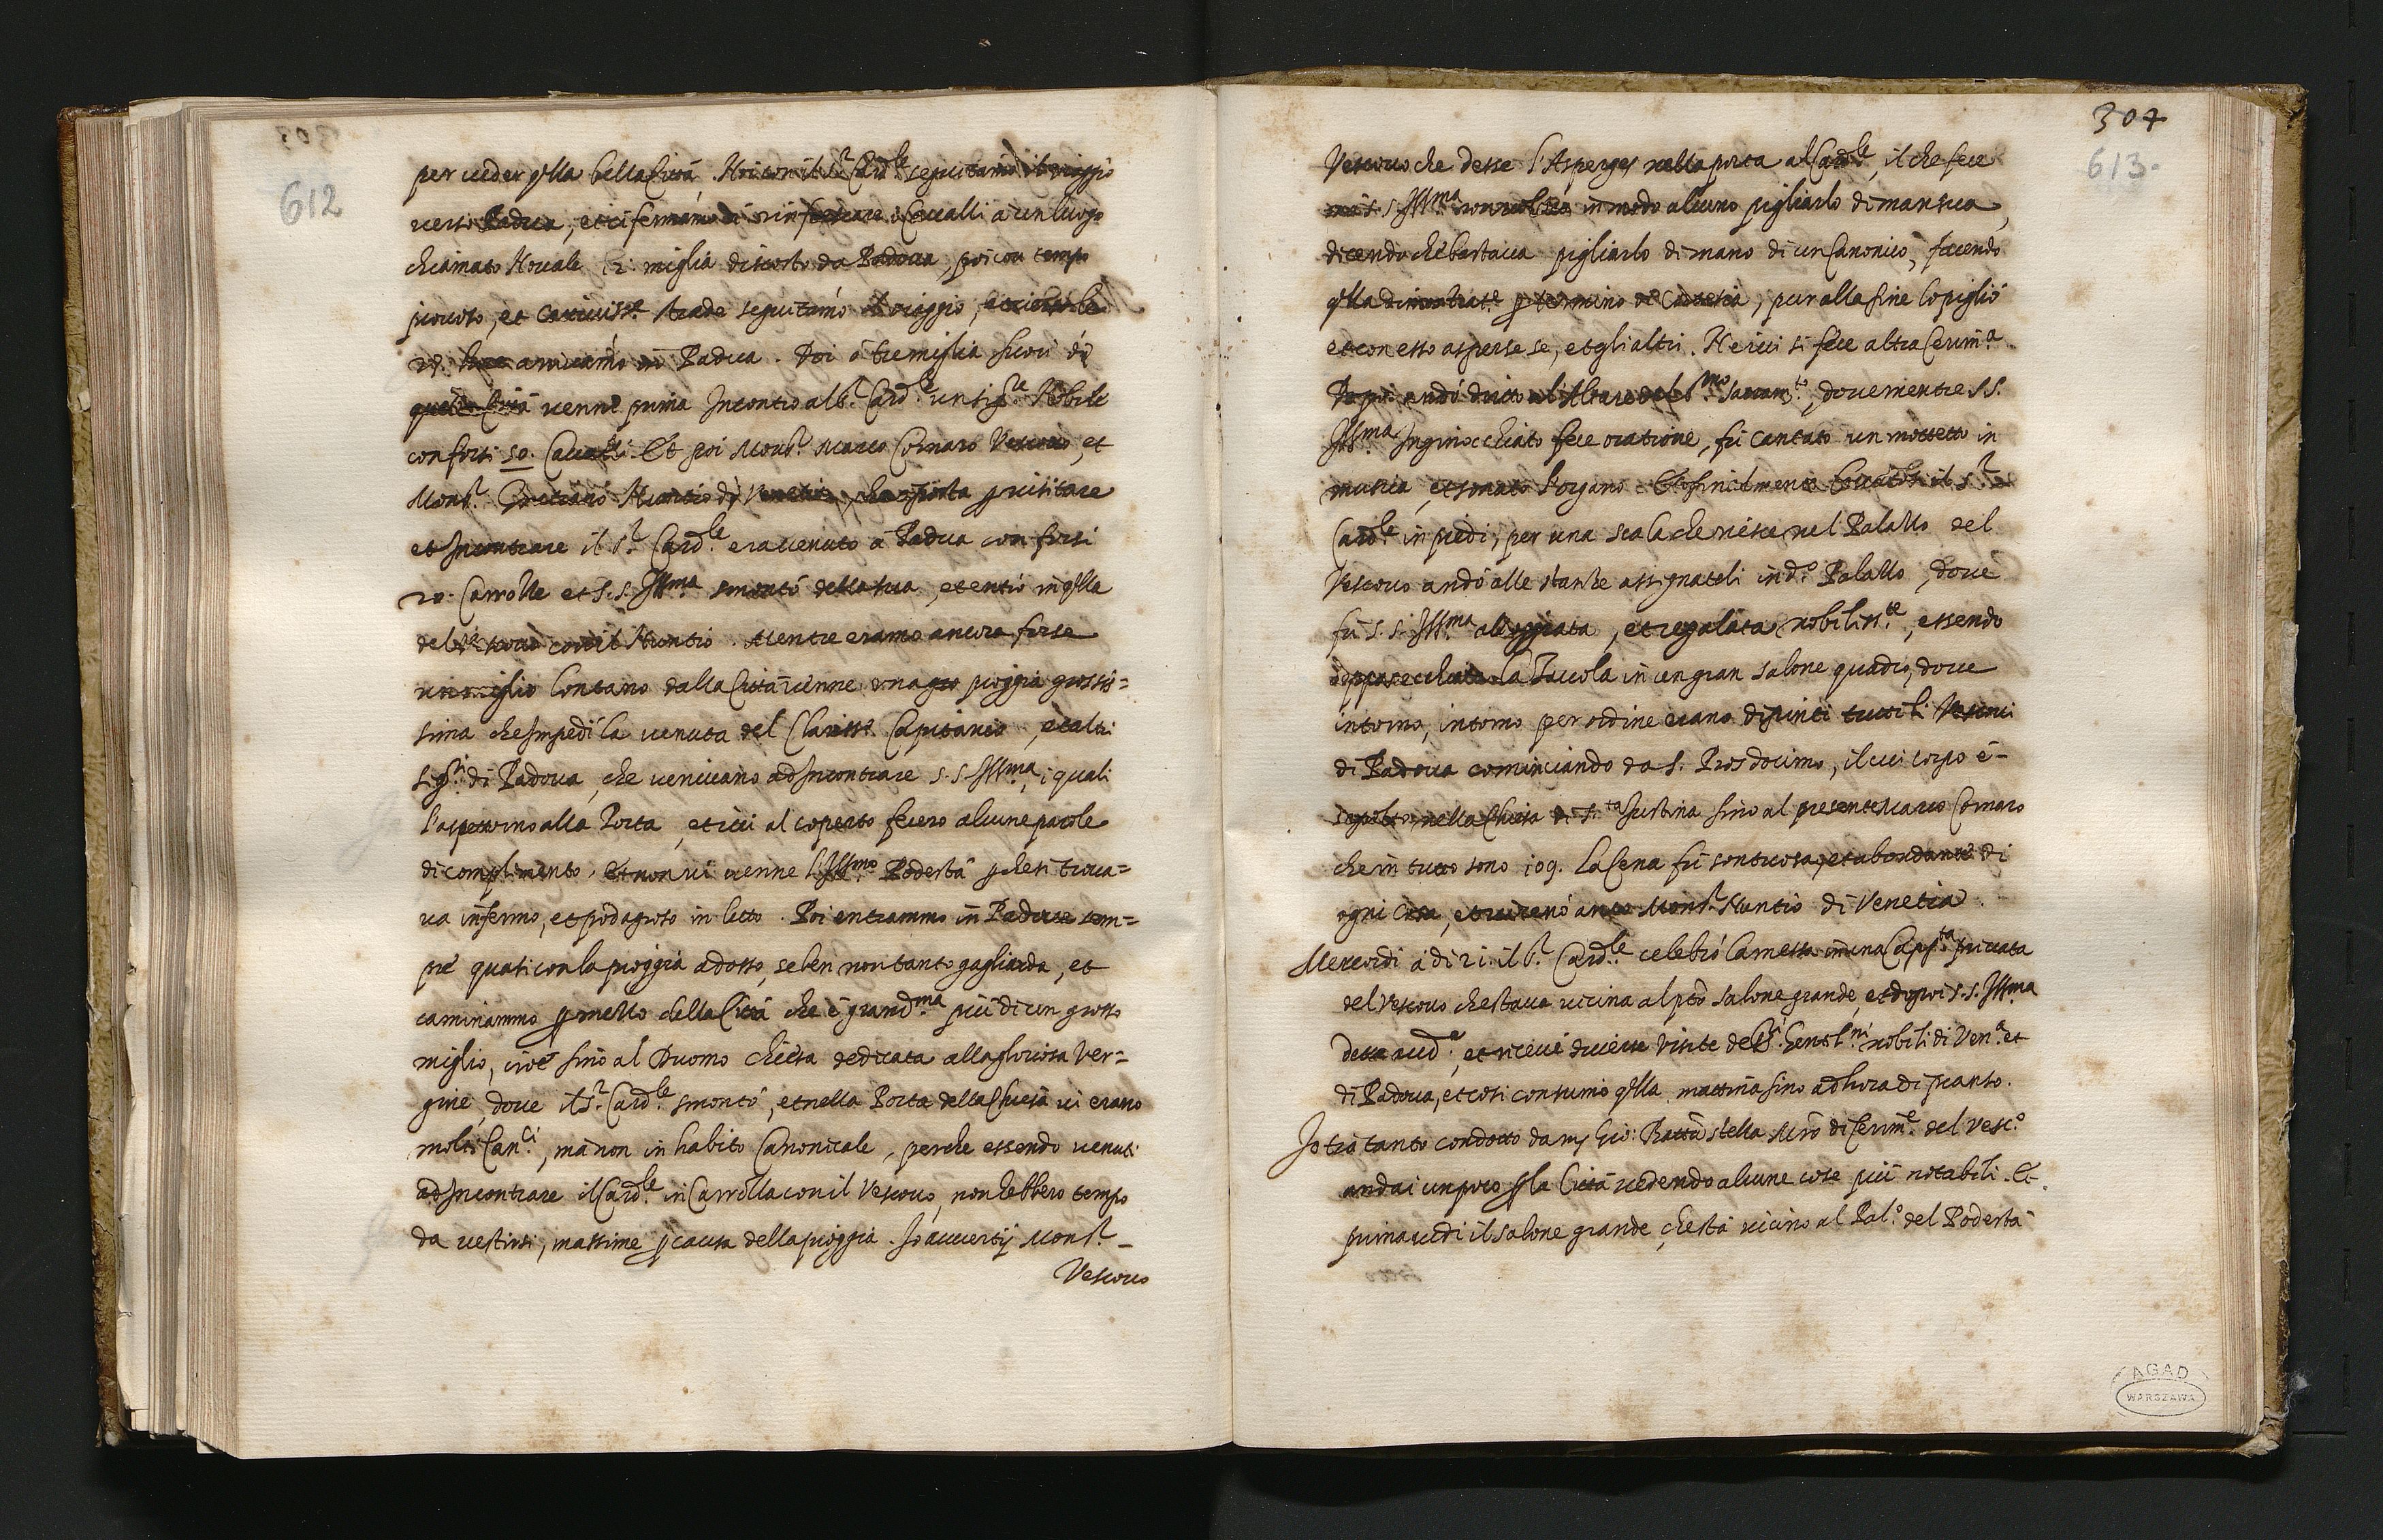 612
per ueder q̃lla bella Città. Noi con il S.r Card.le seguitamo il viaggio
uerso Padua, et ci fermamo à rinfrescare i Caualli à un luogo
chiamato Nouale 12. miglia discosto da Padoua, poi con tempo
piouoso, et cattiuiss.e strade seguitamo il viaggio, et uerso le
arriuamo in Padua. Poi à tre miglia fuori di
quella Città uenne prima Incontro al S.r Card.le un sig.re Nobile
con forsi 50. Caualli. Et poi Mons.r Marco Cornaro Vescouo, et
Mons.r Gratiano Nuntio di Venetia, che à posta p uisitare
et Incontrare il S.r Card.le era uenuto à Padua con forsi
20. Carrozze et S. S. Ill.ma smontò della sua, et entrò in q̃lla
del Vescouo con il Nuntio. Mentre eramo ancora forse
un miglio lontano dalla Città uenne una pioggia grossis=
sima che Impedì la uenuta del Clariss.o Capitanio, et altri
Sig.ri di Padoua, che ueniuano ad Incontrare S. S. Ill.ma, i quali
l'aspettorno alla Porta, et iui al coperto fecero alcune parole
di complimento, et non ui uenne l'Ill.mo Podestà p che si troua=
ua infermo, et podagroso in letto. Poi entrammo in Padua sem=
pre quasi con la pioggia adosso, se ben non tanto gagliarda, et
caminammo p mezzo della Città che è grand.ma più di un grosso
miglio, cioè sino al Duomo chiesa dedicata alla gloriosa Ver=
gine, doue il S.r Card.le smontò, et nella Porta della Chiesa ui erano
molti Can.ci, mà non in habito Canonicale, perche essendo uenuti
ad Incontrare il Card.le in Carrozza con il Vescouo, non hebbero tempo
da uestirsi, massime p causa della pioggia. Io auuertij Mons.r
Vescouo
304
613.
Vescouo che desse l'Asperges nella porta al Card.le, il che fece
mà S. S. Ill.ma non uolse in modo alcuno pigliarlo di man sua,
dicendo che bastaua pigliarlo di mano di un Canonico, facendo
q̃lla dimostrat.e p termino de Cortesia, pur alla fine lo pigliò
et con esso asperse se, et gli altri. Ne iui si fece altra Cerim.a
Da poi andò dritto al Altare del S.mo Sacram.to, doue mentre S. S.
Ill.ma Inginocchiato fece oratione, fù cantato un mottetto in
musica, et sonato l'organo. Et finalmente leuatosi il S.r
Card.le in piedi, per una scala che riesce nel Palazzo del
Vescouo andò alle stanze assignateli in d.o Palazzo, doue
fù S. S. Ill.ma alloggiata, et regalata nobiliss.te, essendo
apparecchiata la Tauola in un gran salone quadro, doue
intorno, intorno per ordine erano dipinti tutti li Vescoui
di Padoua cominciando da S. Prosdocimo, il cui corpo è
sepolto nella Chiesa di S.ta Justina sino al presente Marco Cornaro
che in tutto sono 109. La Cena fù sontuosa, et abondante di
ogni cosa, et ui cenò anco Mons.r Nuntio di Venetia.
Mercordi à di 21. il S.r Card.le celebrò la messa in una Capp.ta priuata
del Vescouo che staua uicina al p.to salone grande, et dopoi S. S. Ill.ma
dette aud.a, et riceuè diuerse visite de S.ri Gentil.ni nobili di Ven.a et
di Padoua, et così consumò q̃lla mattina sino ad hora di pranso.
Io tra tanto condotto da m. Gio: Batta stella Mro di Cerim.e del Vesc.o
andai un poco p la Città uedendo alcune cose più notabili. Et
prima uedi il salone grande, che stà uicino al Pal.o del Podestà
AGAD
WARSZAWA